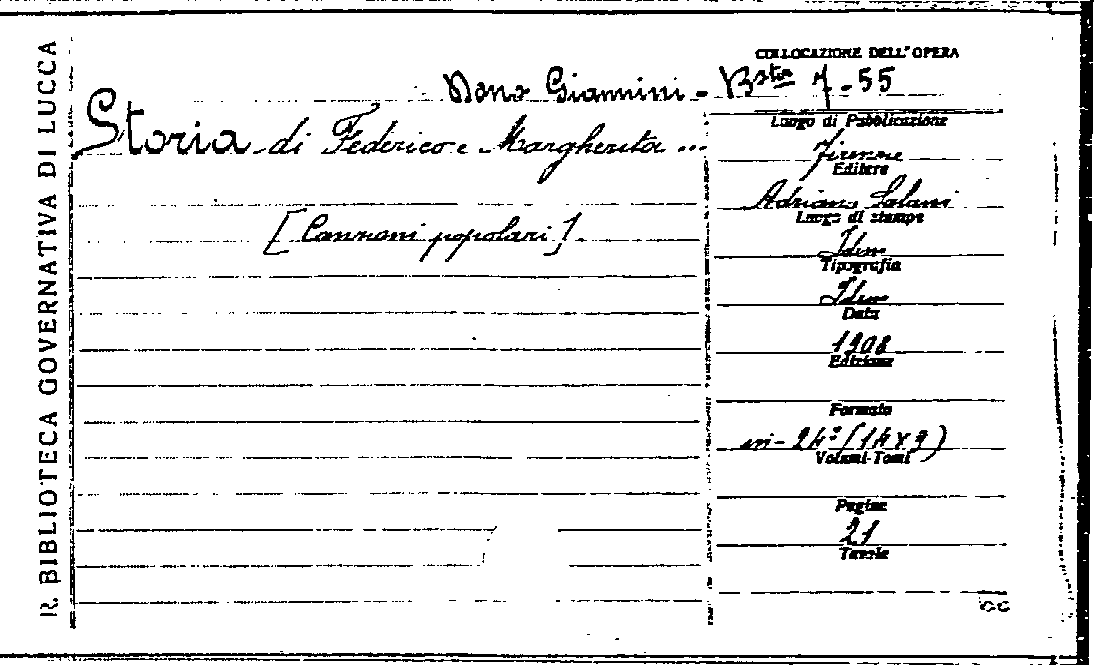 R. BIBLIOTECA GOVERNATIVA DI LUCCA
COLLOCAZIONE DELL'OPERA
Dono Giannini - Bsta 7 - 55
Storia di Federico e Margherita ...
[Canzoni popolari].
Luogo di Pubblicazione
Firenze
Editore
Adriano Salani
Luogo di stampa
Idem
Tipografia
Idem
Data
1908
Edizione
Formato
in-24° (14x9)
Volumi-Tomi
Pagine
21
Tavole